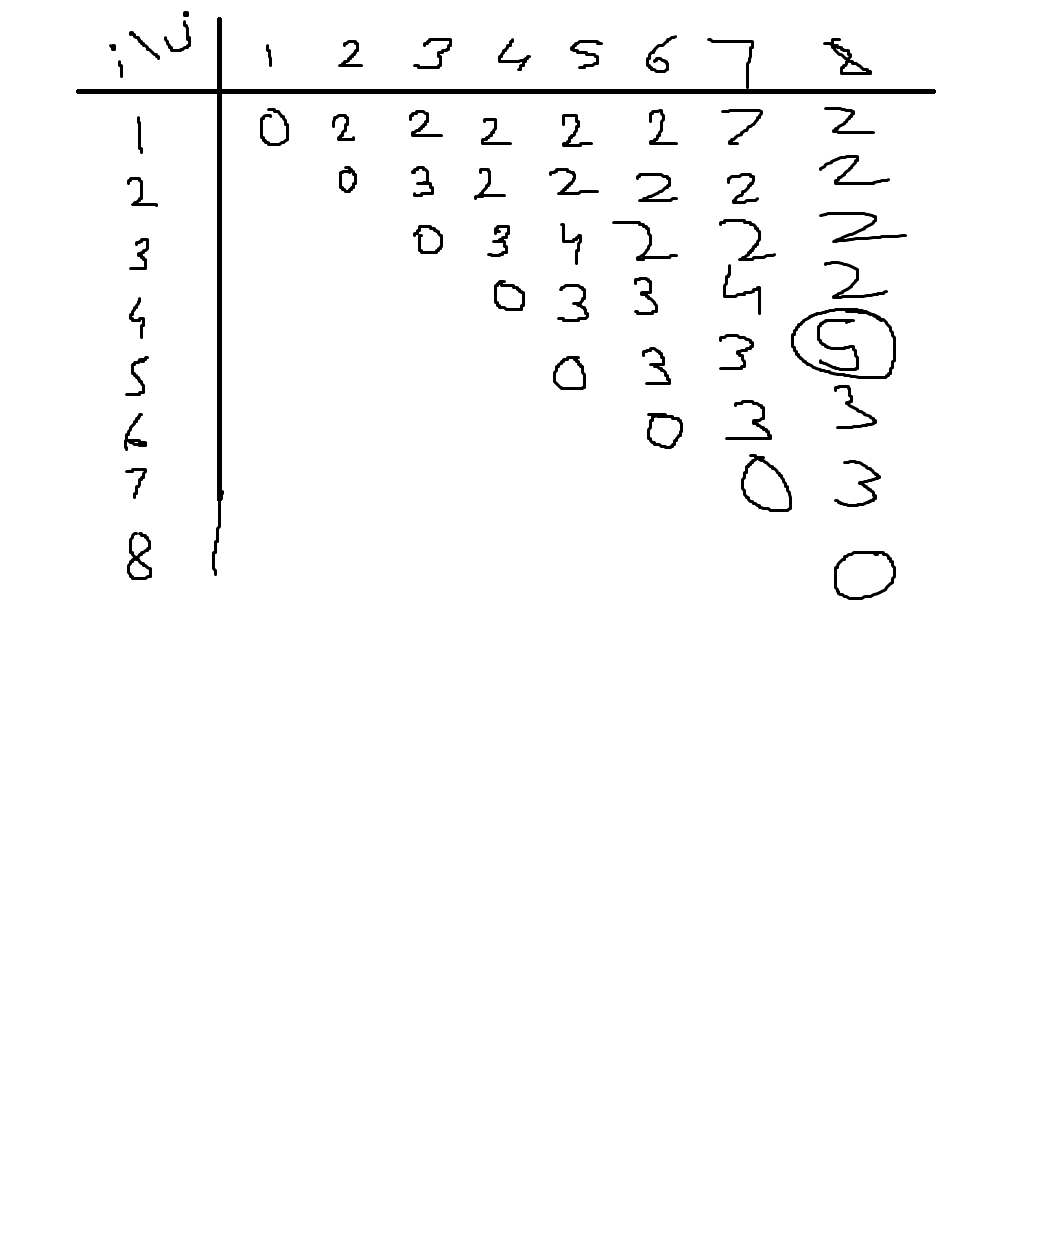 i\j 1 2 3 4 5 6 7 8
1 0 2 2 2 2 2 7 2
2 0 3 2 2 2 2 2
3 0 3 4 2 2 2
4 0 3 3 4 2
5 0 3 3 5
6 0 3 3
7 0 3
8 0